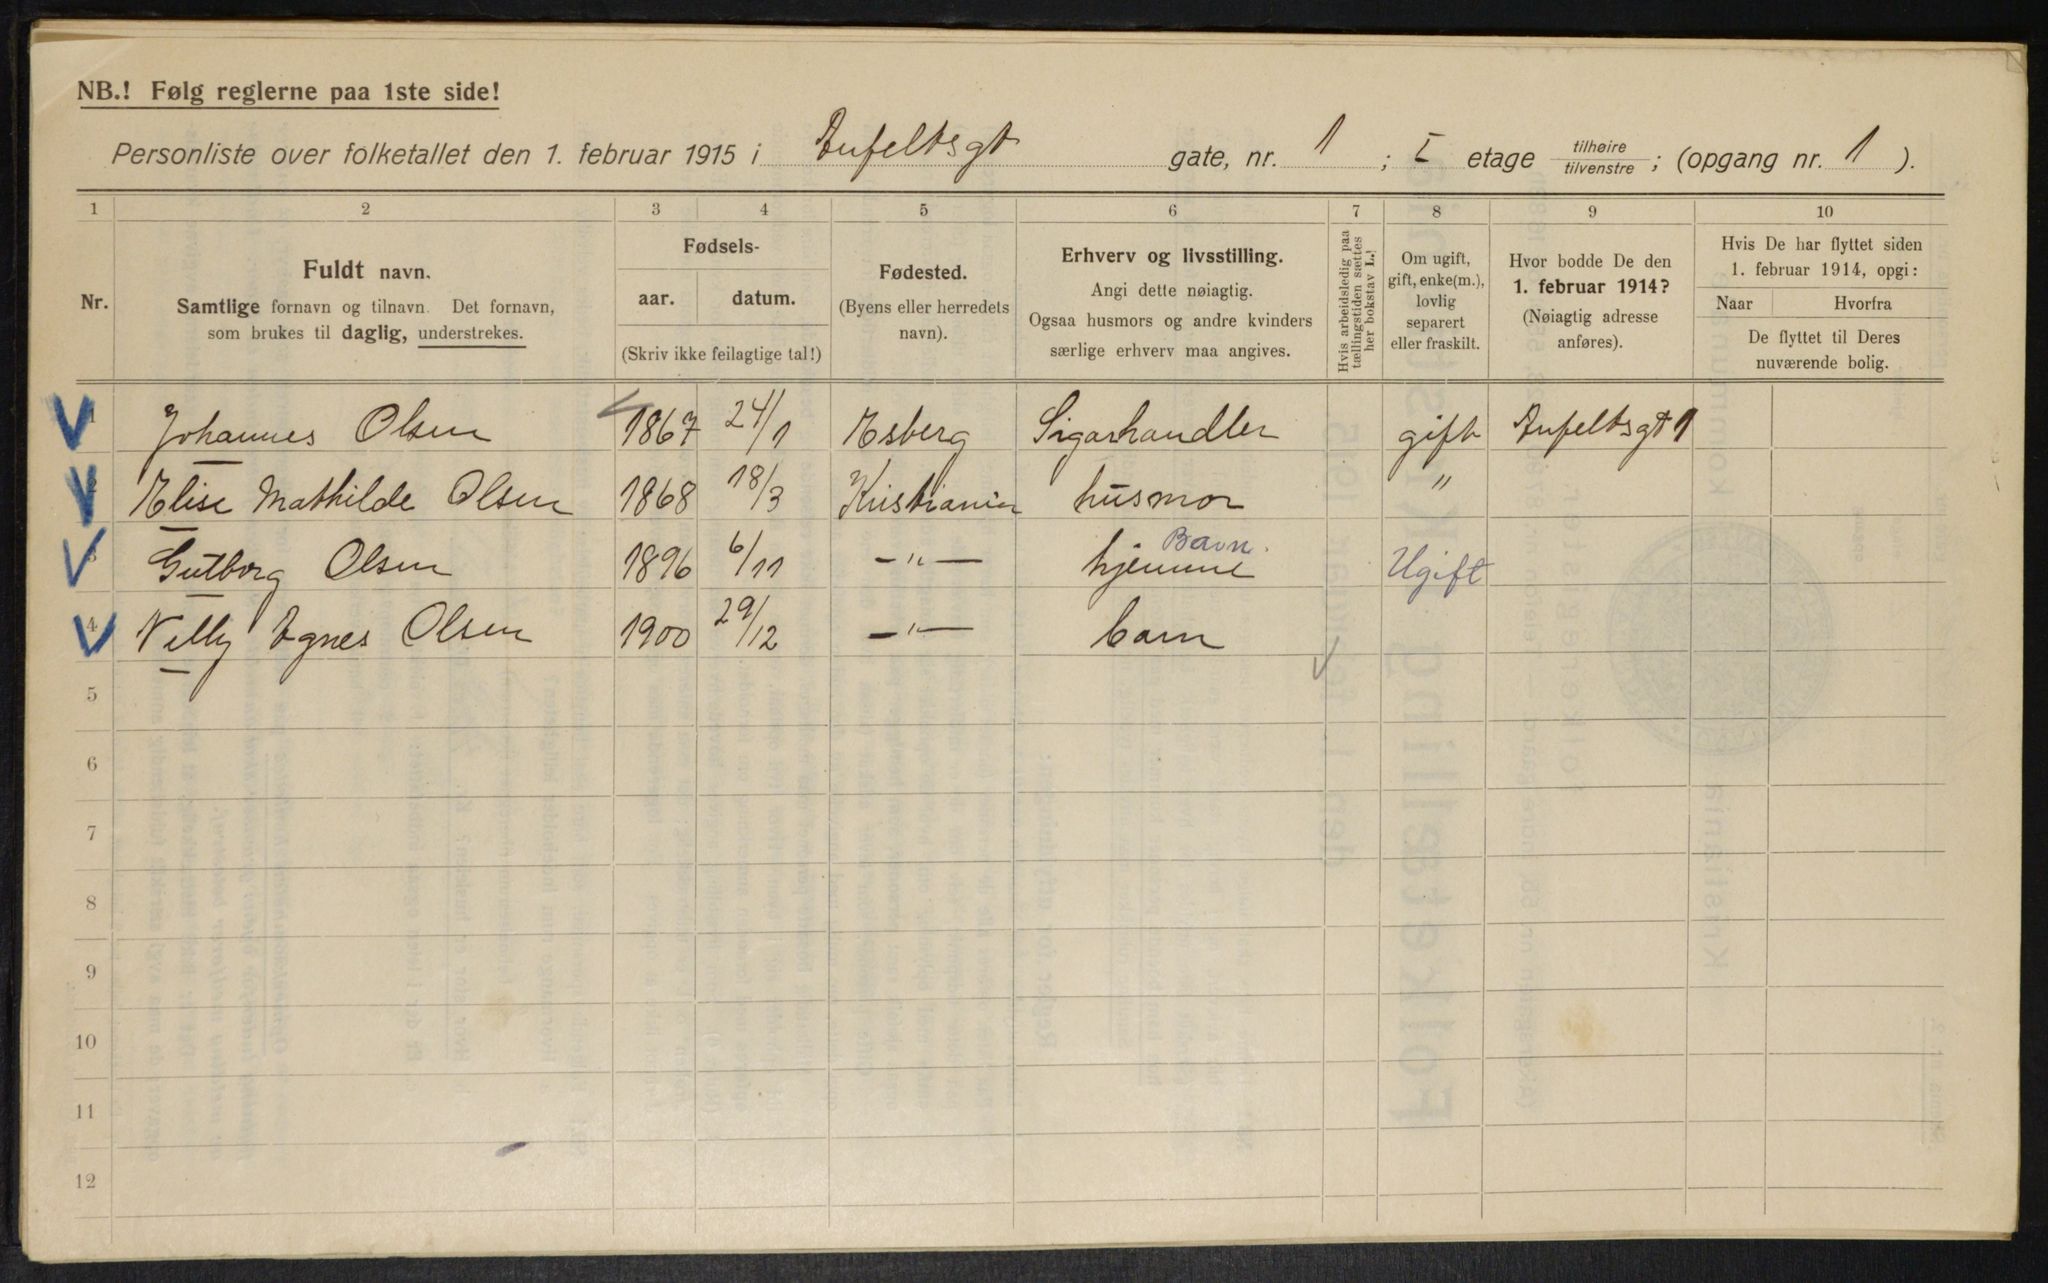 NB.! Følg reglerne paa 1ste side!
Personliste over folketallet den 1. februar 1915 i Anfeltsgt gate, nr. 1 ; I etage tilhøire / tilvenstre ; (opgang nr. 1 ).
1 2 3 4 5 6 7 8 9 10
Nr.
Fuldt navn.
Samtlige fornavn og tilnavn. Det fornavn,
som brukes til daglig, understrekes.
Fødsels-
aar. datum.
(Skriv ikke feilagtige tal!)
Fødested.
(Byens eller herredets
navn).
Erhverv og livsstilling.
Angi dette nøiagtig.
Ogsaa husmors og andre kvinders
særlige erhverv maa angives.
Hvis arbeidsledig paa
tællingstiden sættes
her bokstav L.!
Om ugift,
gift, enke(m.),
lovlig
separert
eller fraskilt.
Hvor bodde De den
1. februar 1914?
(Nøiagtig adresse
anføres).
Hvis De har flyttet siden
1. februar 1914, opgi:
Naar Hvorfra
De flyttet til Deres
nuværende bolig.
1 Johannes Olsen 1867 24/1 Esberg Sigarhandler gift Anfeltsgt 1
2 Elise Mathilde Olsen 1868 18/3 Kristiania husmor "
3 Gutborg Olsen 1896 6/11 —"— hjemme Barn. Ugift
4 Nelly Agnes Olsen 1900 29/12 —"— barn
5
6
7
8
9
10
11
12